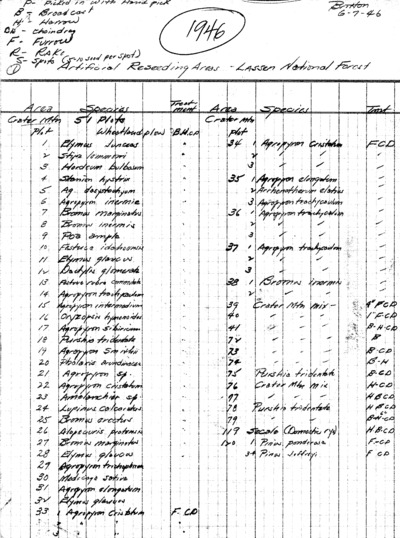 P- Picked in with Hand pick
B- Broadcast
H- Harrow
CD- chain drag
F- Furrow
R- Rake
S- Spots (5-10 seed per spot)
1946
Burton
6-7-46
① Artificial Reseeding Areas - Lassen National Forest
Area Species Treatment Area Species Tmt
Crater Mtn 51 Plots Crater Mtn
Plot Wheatland plow - B.H.CD plot
1 Elymus Junceus "
2 Stipa lemmoni "
3 Hordeum bulbosum "
4 Sitanion hystrix "
5 Ag. dasystachyum "
6 Agropyrum inerme "
7 Bromus marginatus "
8 Bromus inermis "
9 Poa ampla "
10 Festuca idahoensis "
11 Elymus glaucus "
12 Dactylis glomerata "
13 Festuca rubra commutata "
14 Agropyron trachycaulum "
15 Agropyron intermedium "
16 Oryzopsis hymenoides "
17 Agropyron sibiricum "
18 Purshia tridentata "
19 Agropyron Smithii "
20 Phalaris arundinacea "
21 Agropyron sp. "
22 Agropyron cristatum "
23 Amelanchier sp. "
24 Lupinus calcaratus "
25 Bromus erectus "
26 Alopecuris pratensis "
27 Bromus marginatus "
28 Elymus glaucus "
29 Agropyron trichophorum "
30 Medicago sativa "
31 Agropyron elongatum "
32 Elymus glaucus "
33 1 Agropyron Cristatum F-CD
2 "
3 "
34 1 Agropyron Cristatum F-CD
2 " "
3 " "
35 1 Agropyron elongatum "
2 Arrhenatherum elatius "
3 Agropyron trachycaulum "
36 1 Agropyron trachycaulum "
2 " "
3 " "
37 1 Agropyron trachycaulum "
2 " "
3 " "
38 1 Bromus inermis "
2 " "
39 Crater Mtn mix - F-CD
40 " " " 1" F-CD
41 " " " B-H-CD
72 " " " B
73 " " " B-CD
74 " " " B-H
75 Purshia tridentata B-CD
76 Crater Mtn mix H-CD
77 " " " H B-CD
78 Purshia tridentata H B-CD
79 " " B-H-CD
119 Secale (Domestic rye) H B-CD
120 1 Pinus ponderosa F-CD
2 Pinus Jeffreyi F CD